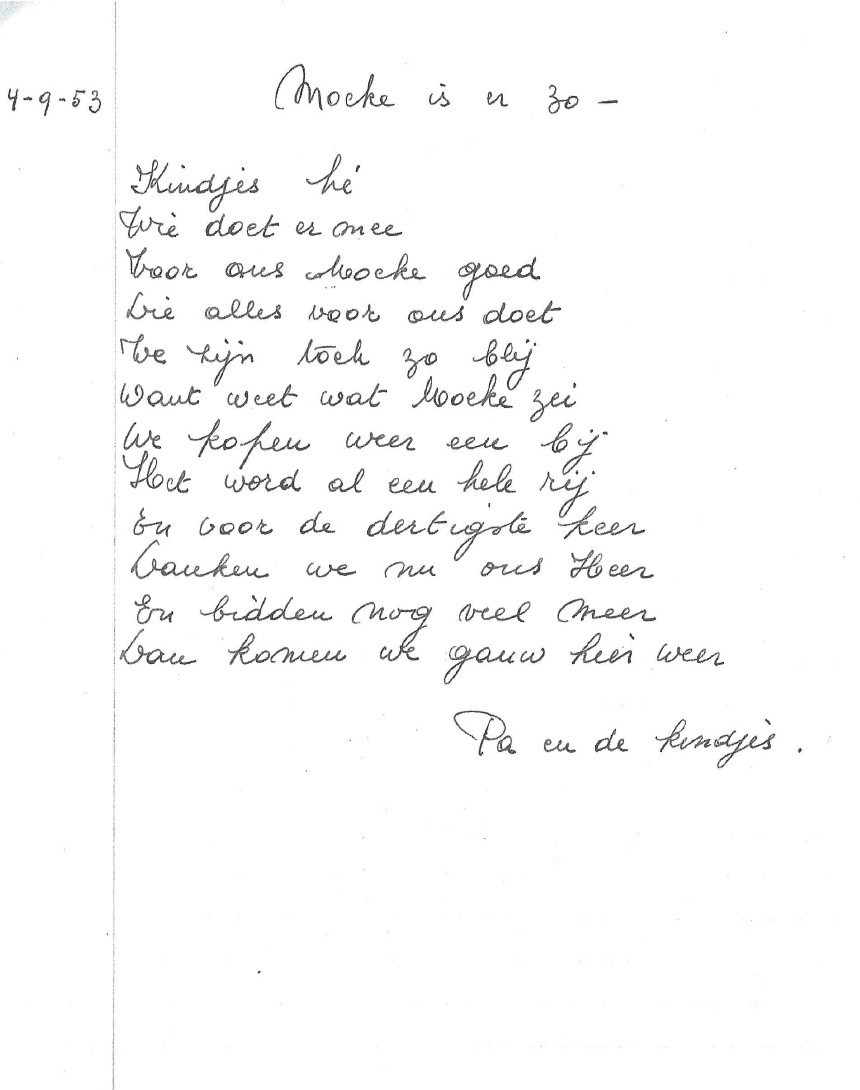 4-9-53
Moeke is er 30 -
Kindjes hé
Wie doet er mee
Voor ons Moeke goed
Die alles voor ons doet
We zijn toch zo blij
Want weet wat Moeke zei
We kopen weer een bij
Het word al een hele rij
En voor de dertigste keer
Danken we nu ons Heer
En bidden nog veel meer
Dan komen we gauw hier weer
Pa en de kindjes.